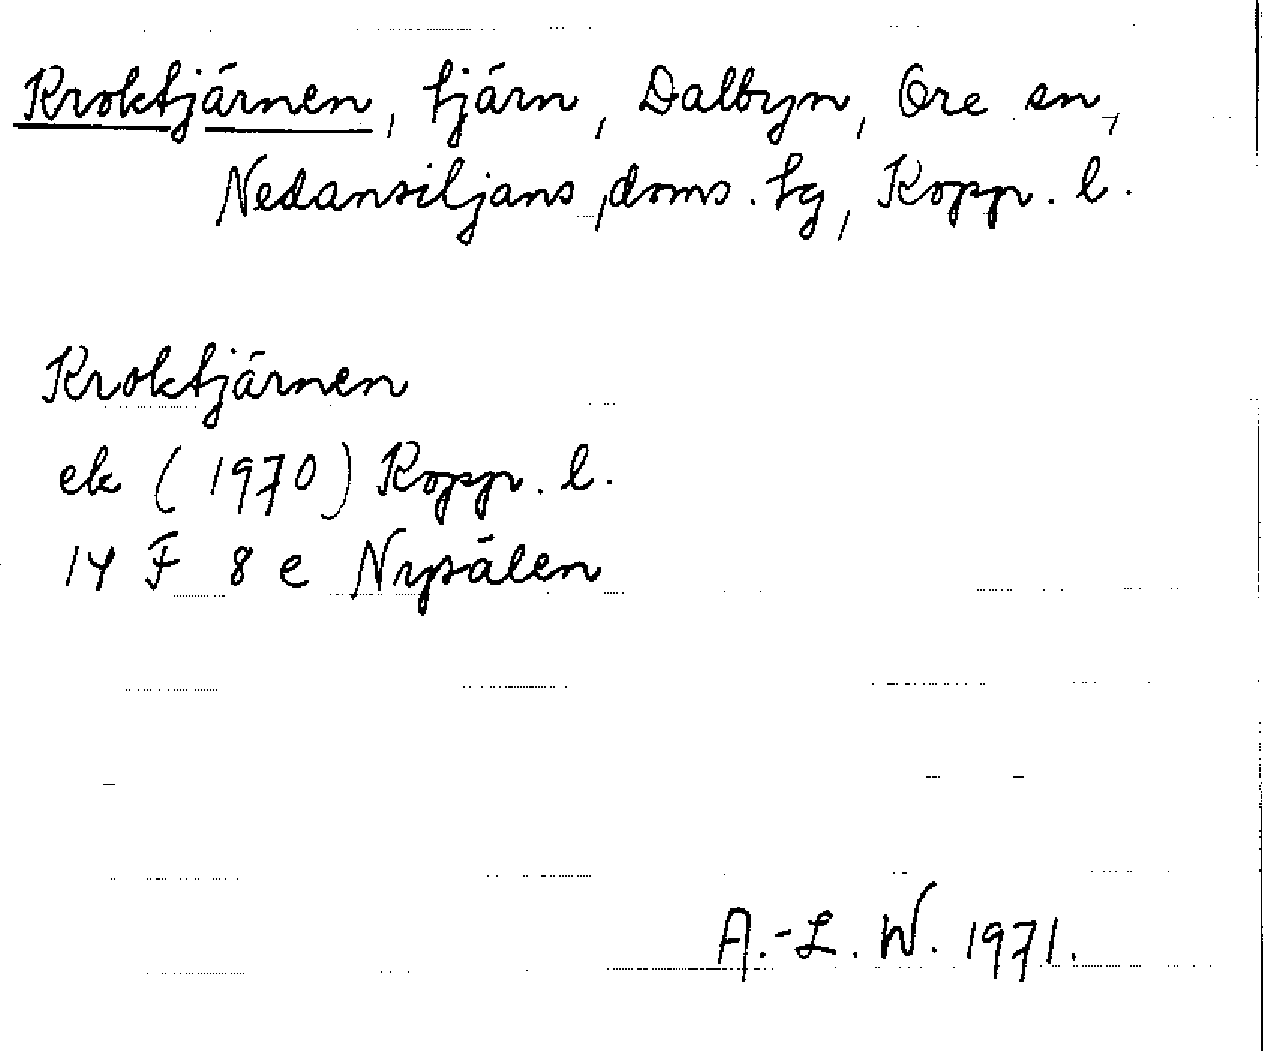 Kroktjärnen, tjärn, Dalbyn, Ore sn,
Nedansiljans doms. tg, Kopp. l.
Kroktjärnen
ek (1970) Kopp. l.
14 F 8 e Nysälen
A.-L. W. 1971.